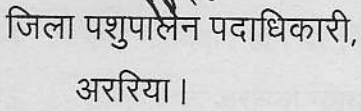 जिला पशुपालन पदाधिकारी,
अररिया।